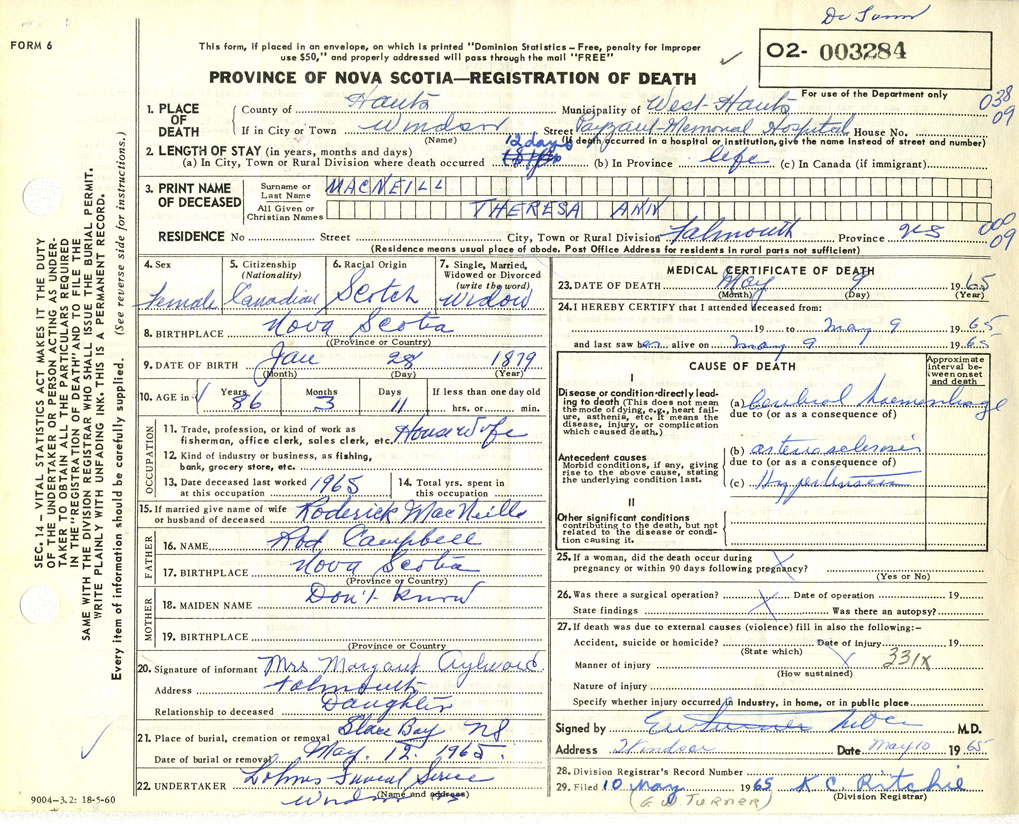 FORM 6
This form, if placed in an envelope, on which is printed "Dominion Statistics – Free, penalty for improper
use $50," and properly addressed will pass through the mail "FREE"
PROVINCE OF NOVA SCOTIA—REGISTRATION OF DEATH
O2- 003284
For use of the Department only
038
09
1. PLACE OF DEATH
County of Hants Municipality of West-Hants
If in City or Town Windsor Street Payzant Memorial Hospital House No.
(Name) (If death occurred in a hospital or institution, give the name instead of street and number)
2. LENGTH OF STAY (in years, months and days) 12 days
(a) In City, Town or Rural Division where death occurred (b) In Province life (c) In Canada (if immigrant)
3. PRINT NAME OF DECEASED
Surname or Last Name MACNEILL
All Given or Christian Names THERESA ANN
RESIDENCE No Street City, Town or Rural Division Falmouth Province NS
000
09
(Residence means usual place of abode. Post Office Address for residents in rural parts not sufficient)
4. Sex Female
5. Citizenship (Nationality) Canadian
6. Racial Origin Scotch
7. Single, Married, Widowed or Divorced (write the word) Widow
8. BIRTHPLACE Nova Scotia
(Province or Country)
9. DATE OF BIRTH Jan 28 1879
(Month) (Day) (Year)
10. AGE in Years 86 Months 3 Days 11 If less than one day old hrs. or min.
OCCUPATION
11. Trade, profession, or kind of work as
fisherman, office clerk, sales clerk, etc. Housewife
12. Kind of industry or business, as fishing,
bank, grocery store, etc.
13. Date deceased last worked at this occupation 1965
14. Total yrs. spent in this occupation
15. If married give name of wife or husband of deceased Roderick MacNeill
FATHER
16. NAME Rod Campbell
17. BIRTHPLACE Nova Scotia
(Province or Country)
MOTHER
18. MAIDEN NAME Don't know
19. BIRTHPLACE
(Province or Country
20. Signature of informant Mrs Margaret Aylward
Address Falmouth
Relationship to deceased Daughter
21. Place of burial, cremation or removal Glace Bay NS
Date of burial or removal May. 12. 1965.
22. UNDERTAKER Funeral Service
Windsor NS
(Name and address)
9004-3.2: 18-5-60
MEDICAL CERTIFICATE OF DEATH
23. DATE OF DEATH May 9 1965
(Month) (Day) (Year)
24. I HEREBY CERTIFY that I attended deceased from:
19 to May 9 1965
and last saw her alive on May 9 1965
CAUSE OF DEATH
Approximate interval between onset and death
I
Disease or condition directly leading to death (This does not mean
the mode of dying, e.g., heart failure, asthenia, etc. It means the
disease, injury, or complication
which caused death.)
(a) Cerebral haemorrhage
due to (or as a consequence of)
Antecedent causes
Morbid conditions, if any, giving
rise to the above cause, stating
the underlying condition last.
(b) arteriosclerosis
due to (or as a consequence of)
(c) Hypertension
II
Other significant conditions
contributing to the death, but not
related to the disease or condition causing it
25. If a woman, did the death occur during
pregnancy or within 90 days following pregnancy?
(Yes or No)
26. Was there a surgical operation? Date of operation 19
State findings Was there an autopsy?
27. If death was due to external causes (violence) fill in also the following:-
Accident, suicide or homicide? Date of injury 19
(State which) 331X
Manner of injury
(How sustained)
Nature of injury
Specify whether injury occurred in industry, in home, or in public place
Signed by M.D.
Address Windsor Date May 10 1965
28. Division Registrar's Record Number
29. Filed 10 May 1965 K C. Ritchie
(G W TURNER) (Division Registrar)
SEC. 14 – VITAL STATISTICS ACT MAKES IT THE DUTY
OF THE UNDERTAKER OR PERSON ACTING AS UNDER-
TAKER TO OBTAIN ALL THE PARTICULARS REQUIRED
IN THE "REGISTRATION OF DEATH" AND TO FILE THE
SAME WITH THE DIVISION REGISTRAR WHO SHALL ISSUE THE BURIAL PERMIT.
WRITE PLAINLY WITH UNFADING INK. THIS IS A PERMANENT RECORD.
Every item of information should be carefully supplied. (See reverse side for instructions.)